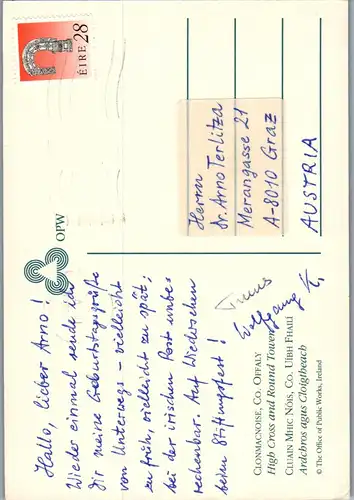 Hallo, lieber Arno!
Wieder einmal sende ich
Dir meine Geburtstagsgrüße
von Unterwegs - vielleicht
zu früh, vielleicht zu spät;
bei der irischen Post unbe-
rechenbar. Auf Wiedersehen
beim Stiftungsfest!
Wolfgang
CLONMACNOISE, CO. OFFALY
High Cross and Round Tower
CLUAIN MHIC NÓIS, CO. UÍBH FHAILÍ
Ardchros agus Cloigtheach
© The Office of Public Works, Ireland
OPW
ÉIRE 28
Herrn
Dr. Arno Terlitza
Merangasse 21
A-8010 Graz
AUSTRIA